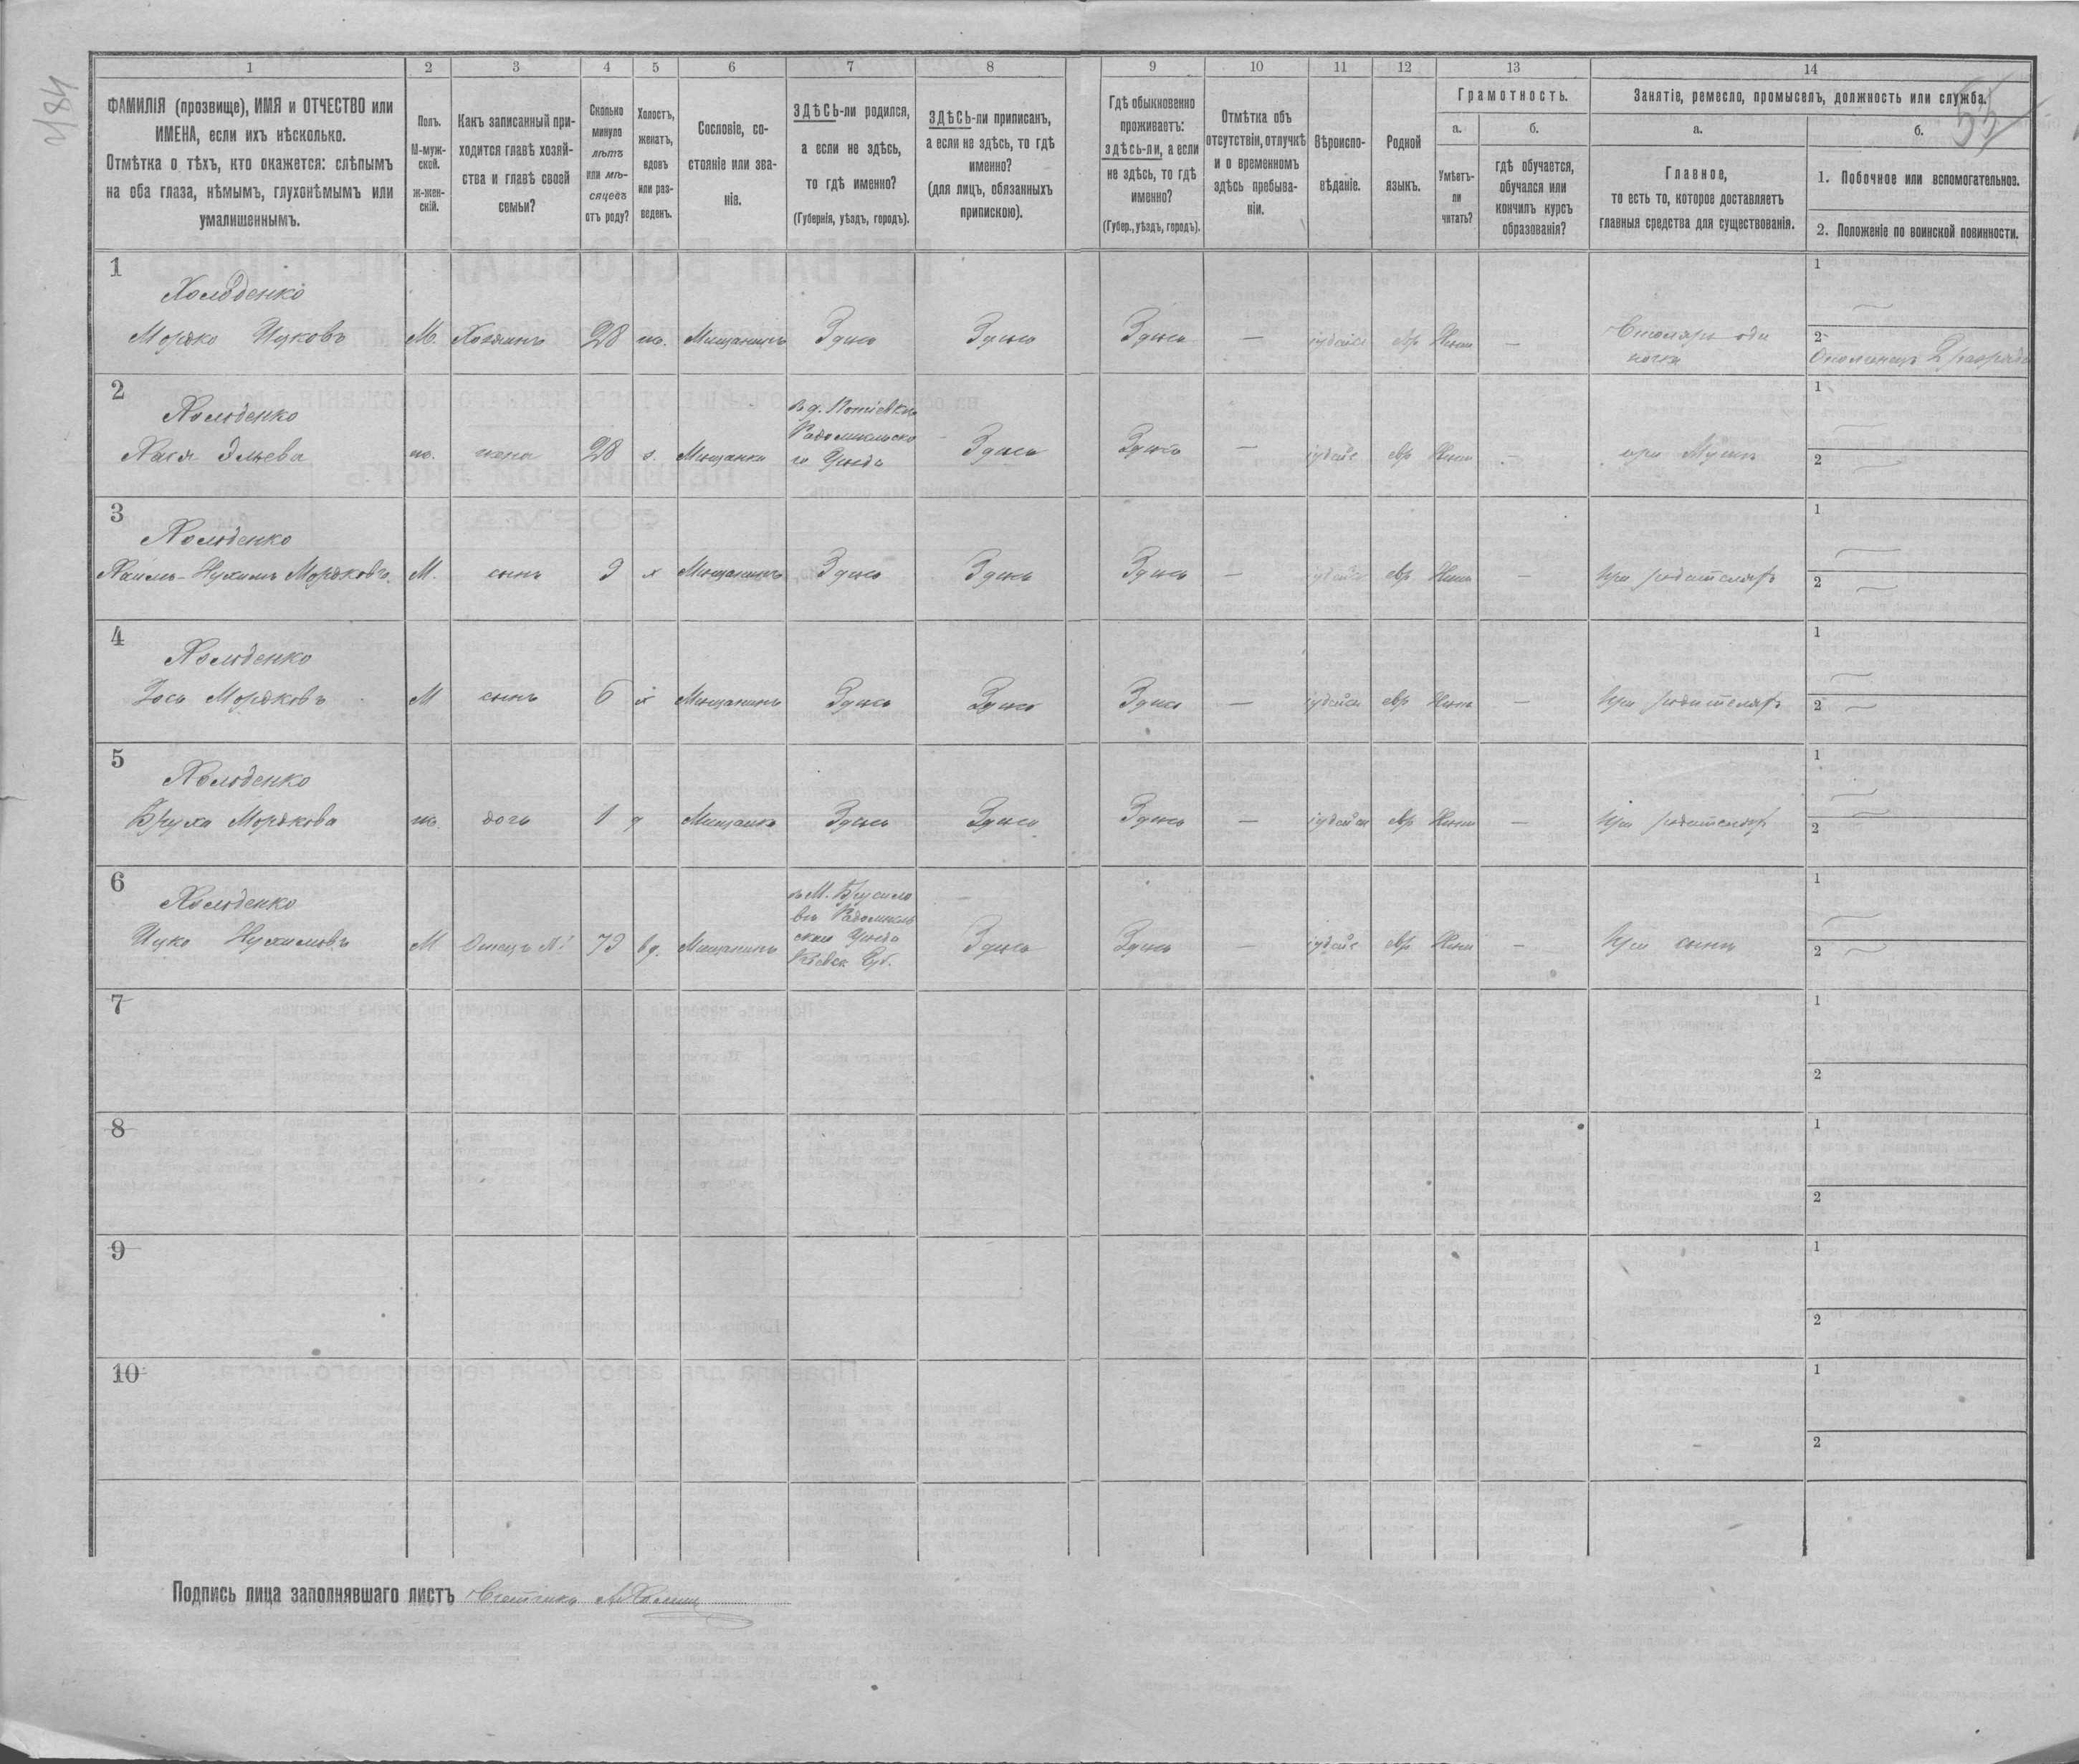 484
55
1 2 3 4 5 6 7 8 9 10 11 12 13 14
ФАМИЛІЯ (прозвище), ИМЯ и ОТЧЕСТВО или
ИМЕНА, если ихъ нѣсколько.
Отмѣтка о тѣхъ, кто окажется: слѣпымъ
на оба глаза, нѣмымъ, глухонѣмымъ или
умалишеннымъ.
Полъ.
М-муж-
ской.
ж-жен-
скій.
Какъ записанный при-
ходится главѣ хозяй-
ства и главѣ своей
семьи?
Сколько
минуло
лѣтъ
или мѣ-
сяцевъ
отъ роду?
Холостъ,
женатъ,
вдовъ
или раз-
веденъ.
Сословіе, со-
стояніе или зва-
ніе.
ЗДѢСЬ-ли родился,
а если не здѣсь,
то гдѣ именно?
(Губернія, уѣздъ, городъ).
ЗДѢСЬ-ли приписанъ,
а если не здѣсь, то гдѣ
именно?
(для лицъ, обязанныхъ
припискою).
Гдѣ обыкновенно
проживаетъ:
здѣсь-ли, а если
не здѣсь, то гдѣ
именно?
(Губер., уѣздъ, городъ).
Отмѣтка объ
отсутствіи, отлучкѣ
и о временномъ
здѣсь пребыва-
ніи.
Вѣроиспо-
вѣданіе.
Родной
языкъ.
Грамотность.
а.
Умѣетъ-
ли
читать?
б.
гдѣ обучается,
обучался или
кончилъ курсъ
образованія?
Занятіе, ремесло, промыселъ, должность или служба.
а.
Главное,
то есть то, которое доставляетъ
главныя средства для существованія.
б.
1. Побочное или вспомогательное.
2. Положеніе по воинской повинности.
1
Холоденко
Мордко Ицковъ М. Хозяинъ 28 ж. Мещанинъ Здѣсь Здѣсь Здѣсь — іудейс евр Нѣтъ — Столяръ оди
ночка
1 —
2 Ополченецъ 2 разряда
2
Холоденко
Хася Эльева ж. жена 28 з. Мещанка
въ д. Потіевкѣ
Радомысльско
го Уѣзда
Здѣсь Здѣсь — іудейс евр Нѣтъ — при Мужѣ
1
2 —
3
Холоденко
Хаимъ-Нухимъ Мордковъ. М. сынъ 9 х Мещанинъ Здѣсь Здѣсь Здѣсь — іудейс евр Нѣтъ — при родителяхъ
1 —
2 —
4
Холоденко
Мордковъ М сынъ 6 х Мещанинъ Здѣсь Здѣсь Здѣсь — іудейск евр Нѣтъ — при родителяхъ
1 —
2 —
5
Холоденко
Бруха Мордкова ж. дочь 1 д Мещанка Здѣсь Здѣсь Здѣсь — іудейск евр Нѣтъ — при родителяхъ
1 —
2 —
6
Холоденко
Ицко Нухимовъ М Отецъ №1 73 вд. Мещанинъ
въ М. Брусило
вѣ Радомысль
скаго Уѣзда
Кіевск Губ.
Здѣсь Здѣсь — іудейс евр Нѣтъ — при сынѣ
1 —
2 —
7
1
2
8
1
2
9
1
2
10
1
2
Подпись лица заполнявшаго листъ Счетчикъ